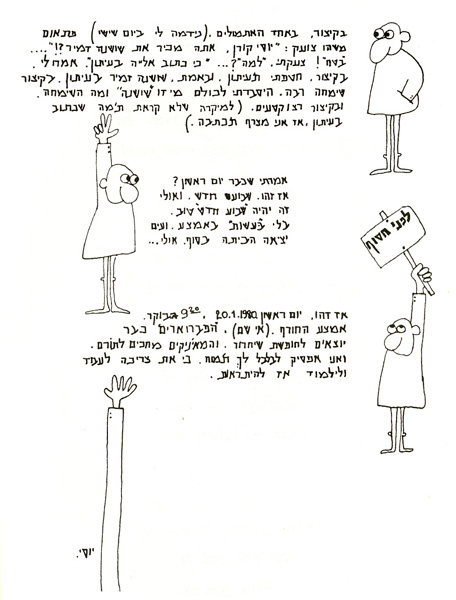 בקיצור, באחד האתמולים. (נידמה לי ביום שישי) פתאום
מישהו צועק: "יוסי קורן, אתה מכיר את שושנה זמיר?!"....
"בטח"! צעקתי. "למה?"... "כי כתוב אליה בעיתון". אמרו לי.
בקיצור. חטפתי תעיתון. באמת, שושנה זמיר בעיתון. בקיצור
שימחה רבה. הסברתי לכולם מי זו "שושנה" ומה השימחה.
ובקיצור רצו קטעים. (למיקרה שלא קראת תימה שכתוב
בעיתון, אז אני מצרף תכתבה.)
אמרתי שכבר יום ראשון?
אז זהו. שבוע חדש. ואולי
זה יהיה שבוע חדש טוב.
בלי "בעיות" באמצע. ועים
יציאה הביתה בסוף. אולי...
לפני חשוף
אז זהו, יום ראשון 20.1.1980, 9³⁰ בבוקר.
אמצע החורף. (אי שם). הפברוארים כבר
יוצאים לחופשת שיחרור. והמאיניקים מחכים לתורם.
ואני אפסיק לבלבל לך תמוח. כי את צריכה לעבוד
ולילמוד אז להיתראות.
יוסי.